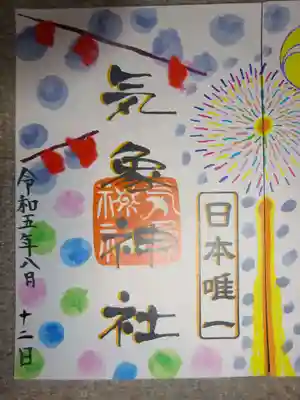 気象神社
日本唯一
令和五年八月十二日